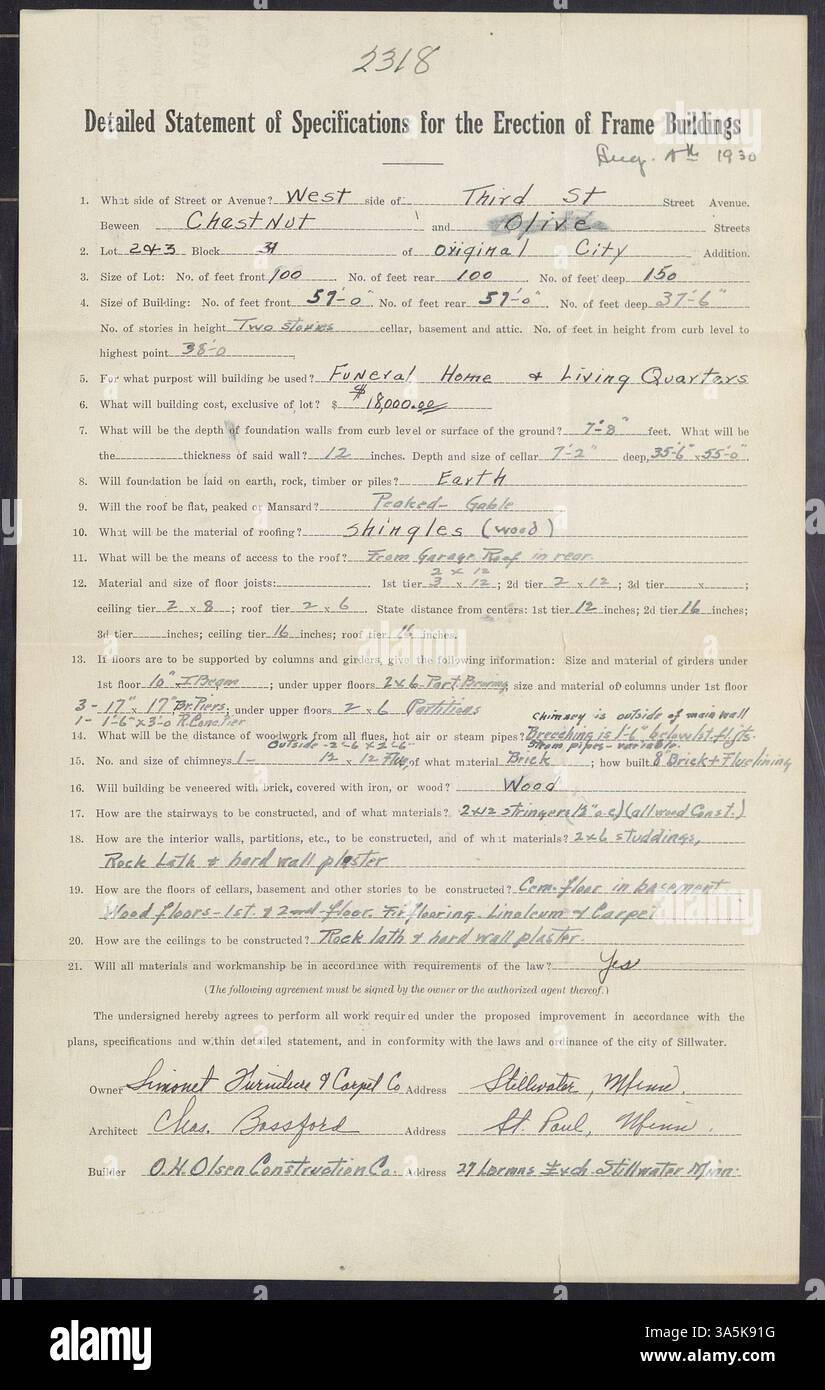 2318
Detailed Statement of Specifications for the Erection of Frame Buildings
Aug. 1930
1. What side of Street or Avenue? West side of Third St Street Avenue.
Beween Chestnut and Olive Streets
2. Lot 2&3 Block 31 of Original City Addition.
3. Size of Lot: No. of feet front 100 No. of feet rear 100 No. of feet deep 150
4. Size of Building: No. of feet front 57'-0" No. of feet rear 57'-0" No. of feet deep 37'-6"
No. of stories in height Two stories cellar, basement and attic. No. of feet in height from curb level to
highest point 38'-0
5. For what purpost will building be used? Funeral Home & Living Quarters
6. What will building cost, exclusive of lot? $ $18,000.00
7. What will be the depth of foundation walls from curb level or surface of the ground? 7'-8" feet. What will be
the thickness of said wall? 12 inches. Depth and size of cellar 7'-2" deep, 35'-6" x 55'-0".
8. Will foundation be laid on earth, rock, timber or piles? Earth
9. Will the roof be flat, peaked or Mansard? Peaked- Gable
10. What will be the material of roofing? Shingles (wood)
11. What will be the means of access to the roof? From Garage Roof in rear.
2 x 12
12. Material and size of floor joists: 1st tier 3 x 12; 2d tier 2 x 12; 3d tier x ;
ceiling tier 2 x 8; roof tier 2 x 6 State distance from centers: 1st tier 12 inches; 2d tier 16 inches;
3d tier inches; ceiling tier 16 inches; roof tier 16 inches.
13. If floors are to be supported by columns and girders, give the following information: Size and material of girders under
1st floor 10" I Beam; under upper floors 2x6 Part. Bearing, size and material of columns under 1st floor
3 - 17" x 17" Br. Piers; under upper floors 2 x 6 Partitions
1 - 1'-6" x 3'-0 R. Conc. Pier
chimney is outside of main wall
14. What will be the distance of woodwork from all flues, hot air or steam pipes? Breeching is 1'-6" below 1st. fl. jts.
Steam pipes - variable.
Outside - 2'-6 x 2'-6"
15. No. and size of chimneys 1 - 12 x 12 Flue, of what material Brick; how built 8" Brick + Flue lining
16. Will building be veneered with brick, covered with iron, or wood? Wood
17. How are the stairways to be constructed, and of what materials? 2x12 stringers (12" o.c) (all wood Const.)
18. How are the interior walls, partitions, etc., to be constructed, and of what materials? 2x6 studdings,
Rock Lath & hard wall plaster
19. How are the floors of cellars, basement and other stories to be constructed? Cem. floor in basement
Wood floors - 1st. & 2nd floor. Fir flooring - Linoleum & Carpet
20. How are the ceilings to be constructed? Rock lath & hard wall plaster.
21. Will all materials and workmanship be in accordance with requirements of the law? Yes
(The following agreement must be signed by the owner or the authorized agent thereof.)
The undersigned hereby agrees to perform all work required under the proposed improvement in accordance with the
plans, specifications and within detailed statement, and in conformity with the laws and ordinance of the city of Sillwater.
Owner Simonet Furniture & Carpet Co Address Stillwater, Minn.
Architect Chas. Bassford Address St. Paul, Minn.
Builder O.H. Olsen Construction Co. Address 27 Exch. Stillwater Minn.
alamy
Image ID: 3A5K91G
www.alamy.com